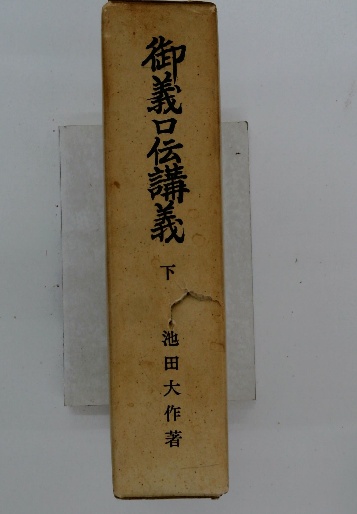 御義口伝講義
下
池田大作著